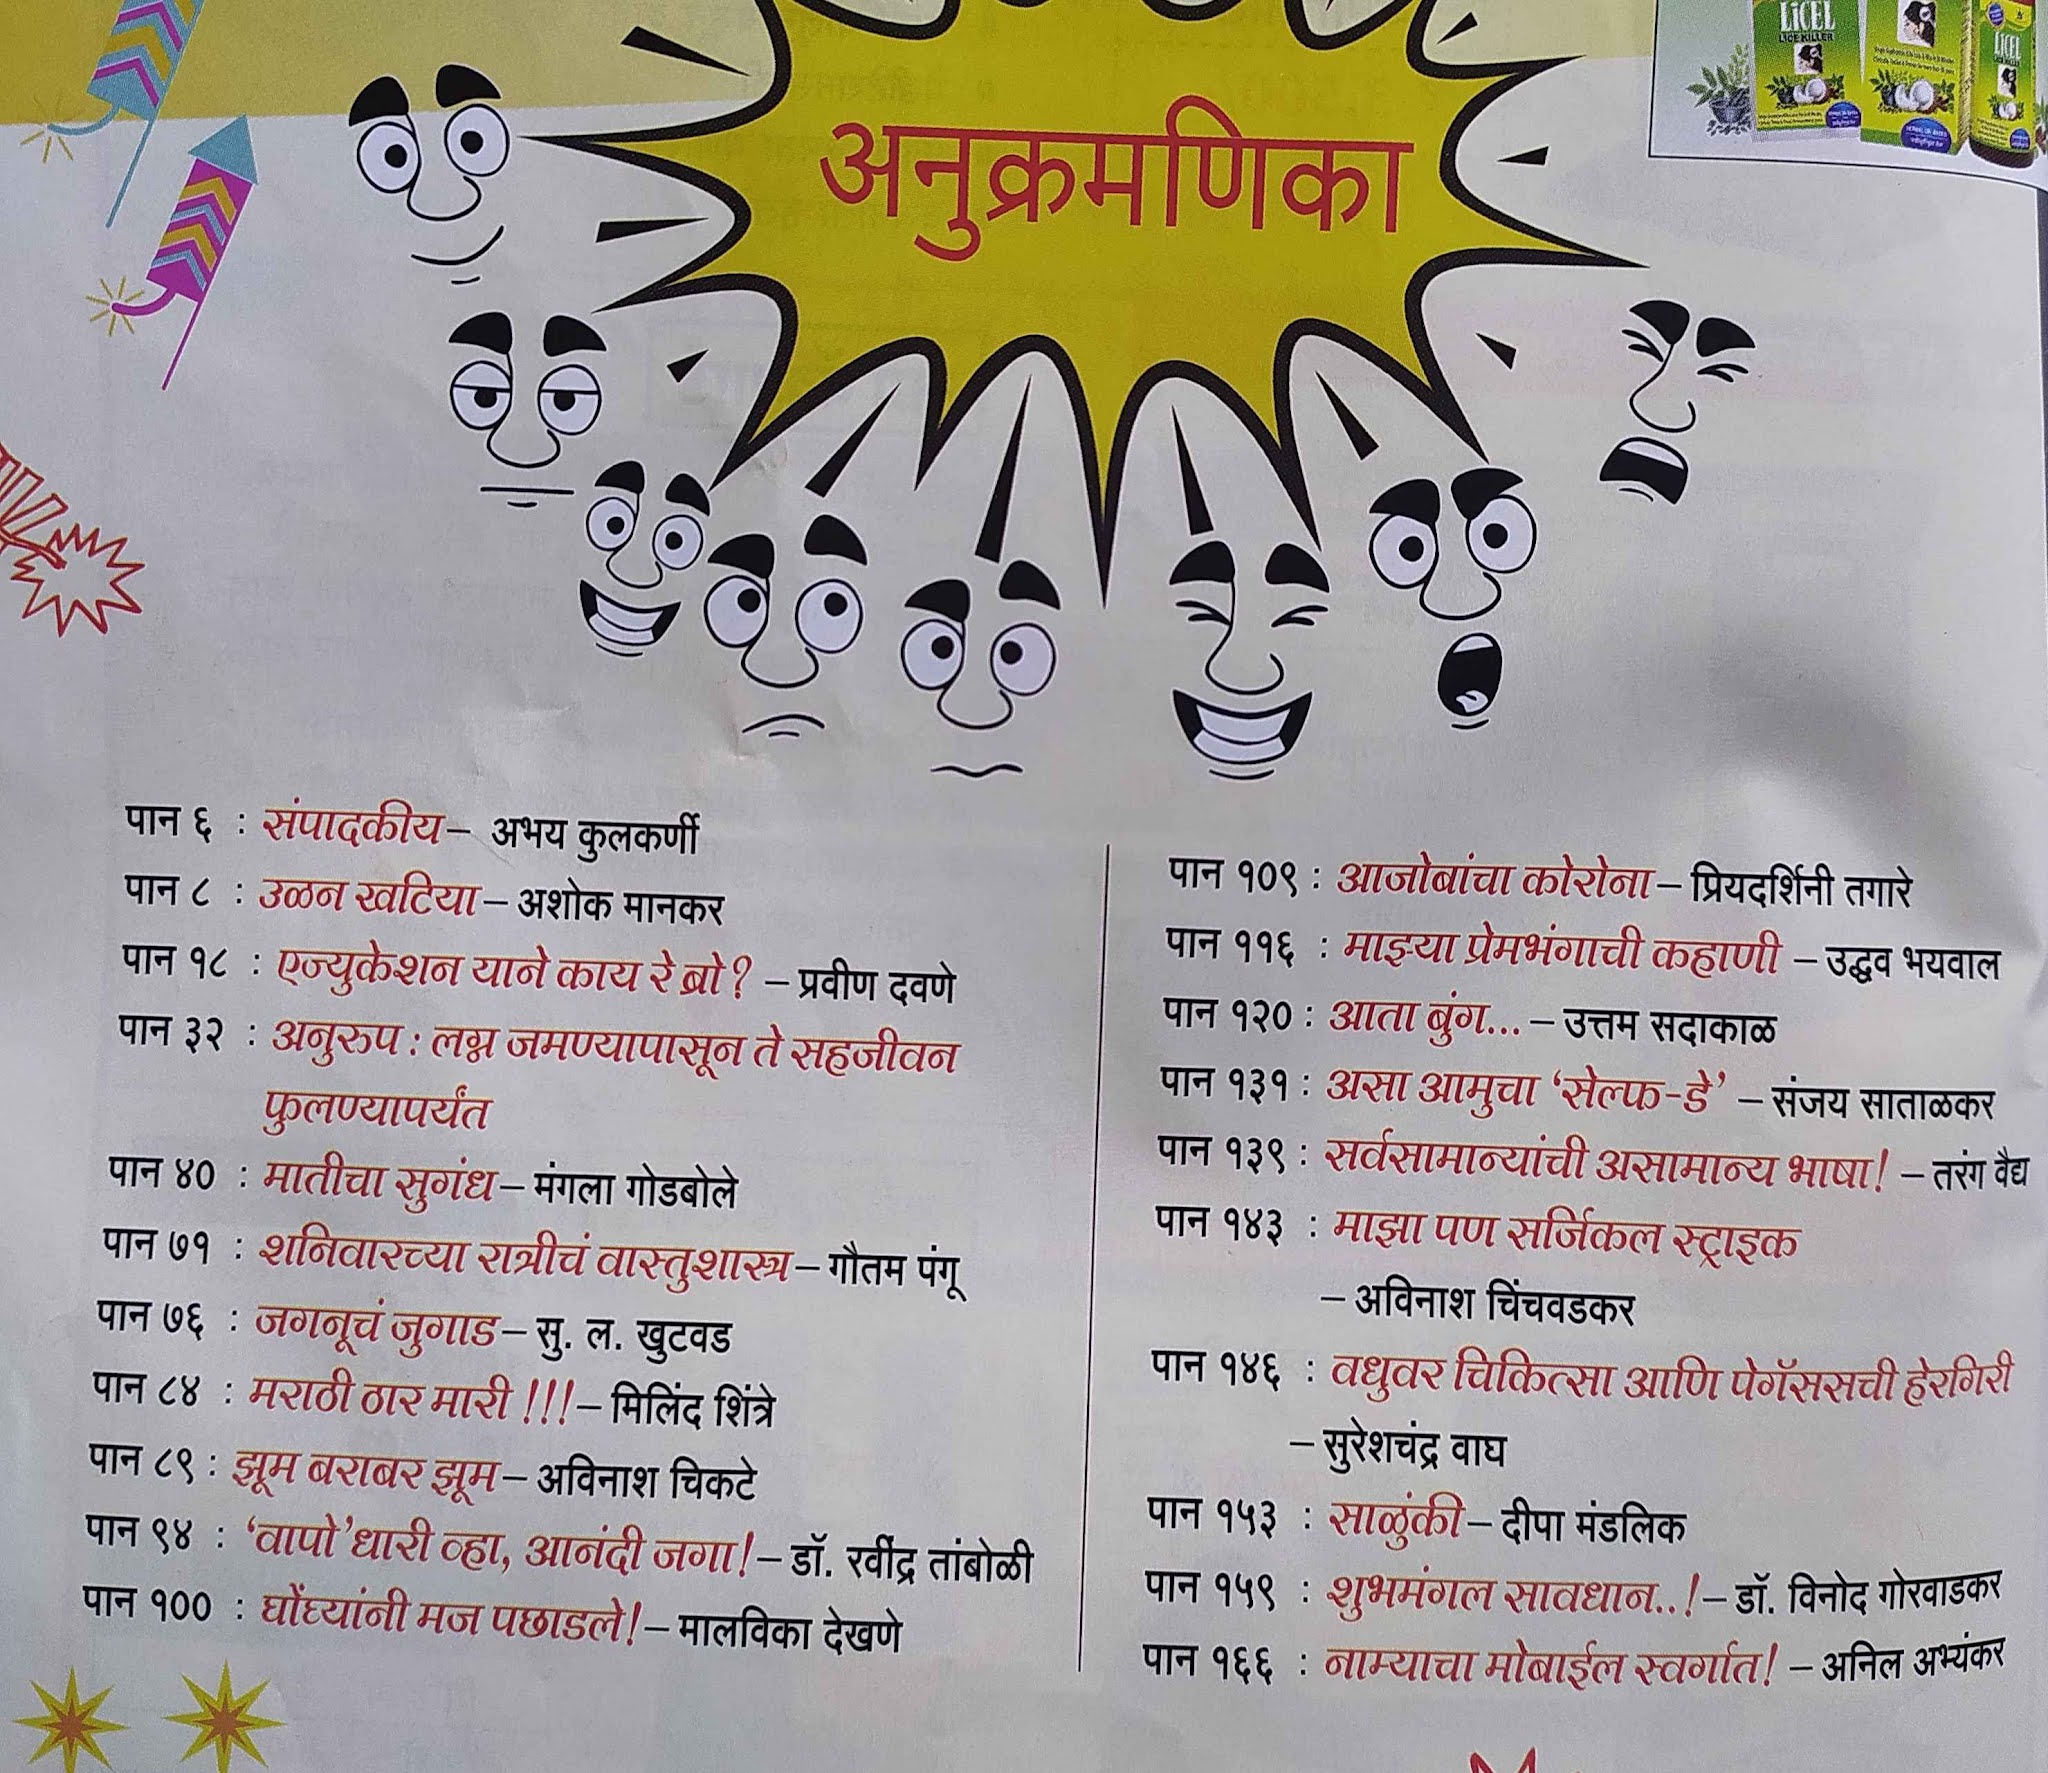 अनुक्रमणिका
LiCEL
LICE KILLER
LICEL
पान ६ : संपादकीय – अभय कुलकर्णी
पान ८ : उळन खटिया – अशोक मानकर
पान १८ : एज्युकेशन याने काय रे ब्रो? – प्रवीण दवणे
पान ३२ : अनुरुप : लग्न जमण्यापासून ते सहजीवन
फुलण्यापर्यंत
पान ४० : मातीचा सुगंध – मंगला गोडबोले
पान ७१ : शनिवारच्या रात्रीचं वास्तुशास्त्र – गौतम पंगू
पान ७६ : जगनूचं जुगाड – सु. ल. खुटवड
पान ८४ : मराठी ठार मारी !!! – मिलिंद शिंत्रे
पान ८९ : झूम बराबर झूम – अविनाश चिकटे
पान ९४ : ‘वापो’धारी व्हा, आनंदी जगा! – डॉ. रवींद्र तांबोळी
पान १०० : घोंघ्यांनी मज पछाडले! – मालविका देखणे
पान १०९ : आजोबांचा कोरोना – प्रियदर्शिनी तगारे
पान ११६ : माझ्या प्रेमभंगाची कहाणी – उद्धव भयवाल
पान १२० : आता बुंग... – उत्तम सदाकाळ
पान १३१ : असा आमुचा ‘सेल्फ-डे’ – संजय साताळकर
पान १३९ : सर्वसामान्यांची असामान्य भाषा! – तरंग वैद्य
पान १४३ : माझा पण सर्जिकल स्ट्राइक
– अविनाश चिंचवडकर
पान १४६ : वधुवर चिकित्सा आणि पेगॅससची हेरगिरी
– सुरेशचंद्र वाघ
पान १५३ : साळुंकी – दीपा मंडलिक
पान १५९ : शुभमंगल सावधान..! – डॉ. विनोद गोरवाडकर
पान १६६ : नाम्याचा मोबाईल स्वर्गात! – अनिल अभ्यंकर